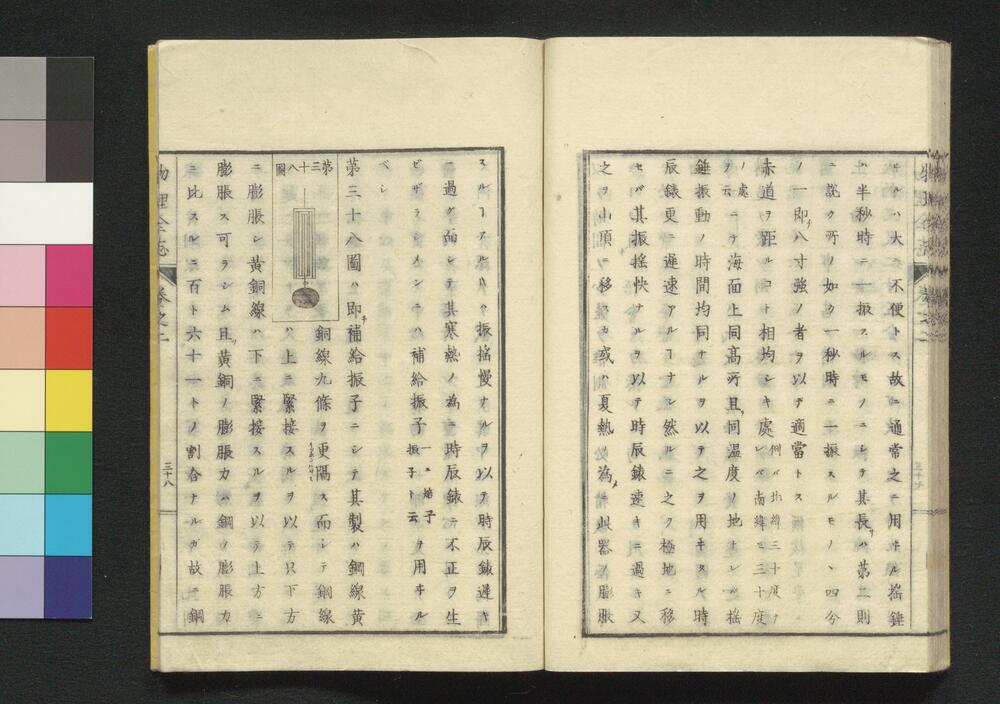 ヰルハ大ニ不便トス故ニ通常之ニ用ヰル搖錘
ハ半秒時ニ一振スルモノニシテ其長ハ第二則
ニ説ク所ノ如ク一秒時ニ一振スルモノヽ四分
ノ一即八寸強ノ者ヲ以テ適當トス
赤道ヲ距ルコト相均シキ處例バ北緯三十度ノ
處ト云ノレバ南緯モ三十度ニテ海面上同高所且同温度ノ地ナレバ搖
錘振動ノ時間均同ナルヲ以テ之ヲ用ヰスル時
辰錶更ニ遲速アルヿナシ然ルニ之ヲ極地ニ移
セバ其振搖快ナルヲ以テ時辰錶速キニ過キ又
之ヲ山頂ニ移スカ或ハ夏熱ノ為ニ此器ノ膨脹
スルヿアルトキハ振搖慢ナルヲ以テ時辰錶遲キ
ニ過グ而シテ其寒熱ノ為ニ時辰錶ニ不正ヲ生
ビザラシメンニハ補給振子一ニ焙子振子ト云ヲ用ヰル
ベシ
第三十八圖ハ即補給振子ニシテ其製ハ鋼線黄
第三十八圖
銅線九條ヲ更隔ス而シテ鋼線
ハ上ニ緊接スルヲ以テ只下方
ニ膨脹シ黄銅線ハ下ニ緊接スルヲ以テ上方ニ
膨脹ス可ラシム且黄銅ノ膨脹力ハ鋼ノ膨脹力
ニ比スルニ百ト六十一トノ割合ナルガ故ニ鋼
物理全志
卷之二
三十八